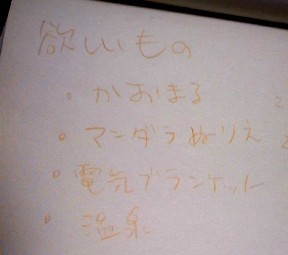 欲しいもの
・かおまる
・マンダラぬりえ
・電気ブランケット
・温泉